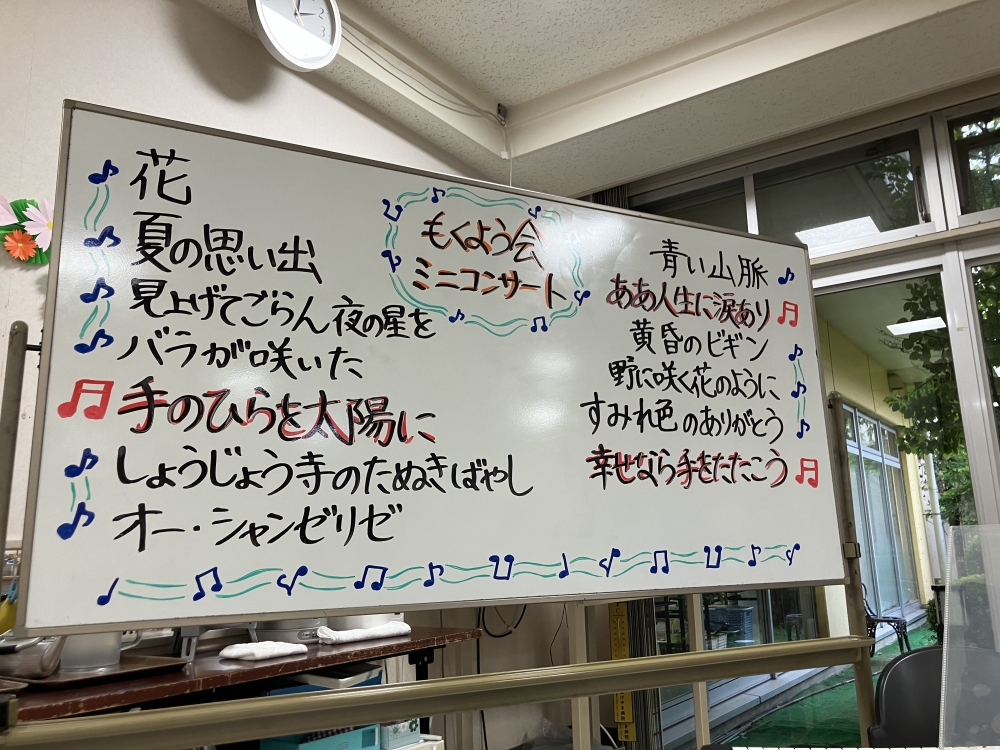 もくよう会
ミニコンサート
花
夏の思い出
見上げてごらん夜の星を
バラが咲いた
手のひらを太陽に
しょうじょう寺のたぬきばやし
オー・シャンゼリゼ
青い山脈
ああ人生に涙あり
黄昏のビギン
野に咲く花のように
すみれ色のありがとう
幸せなら手をたたこう